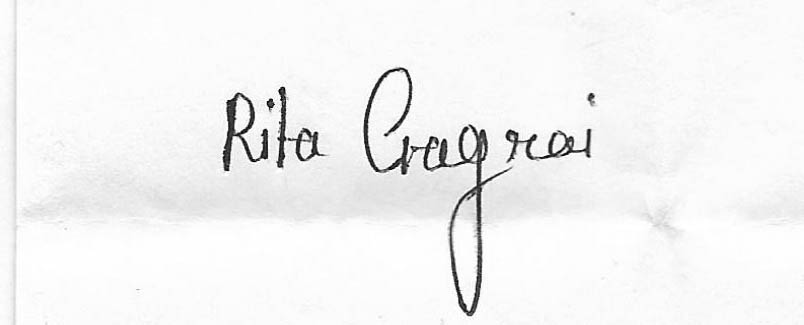 Rita Cragrai